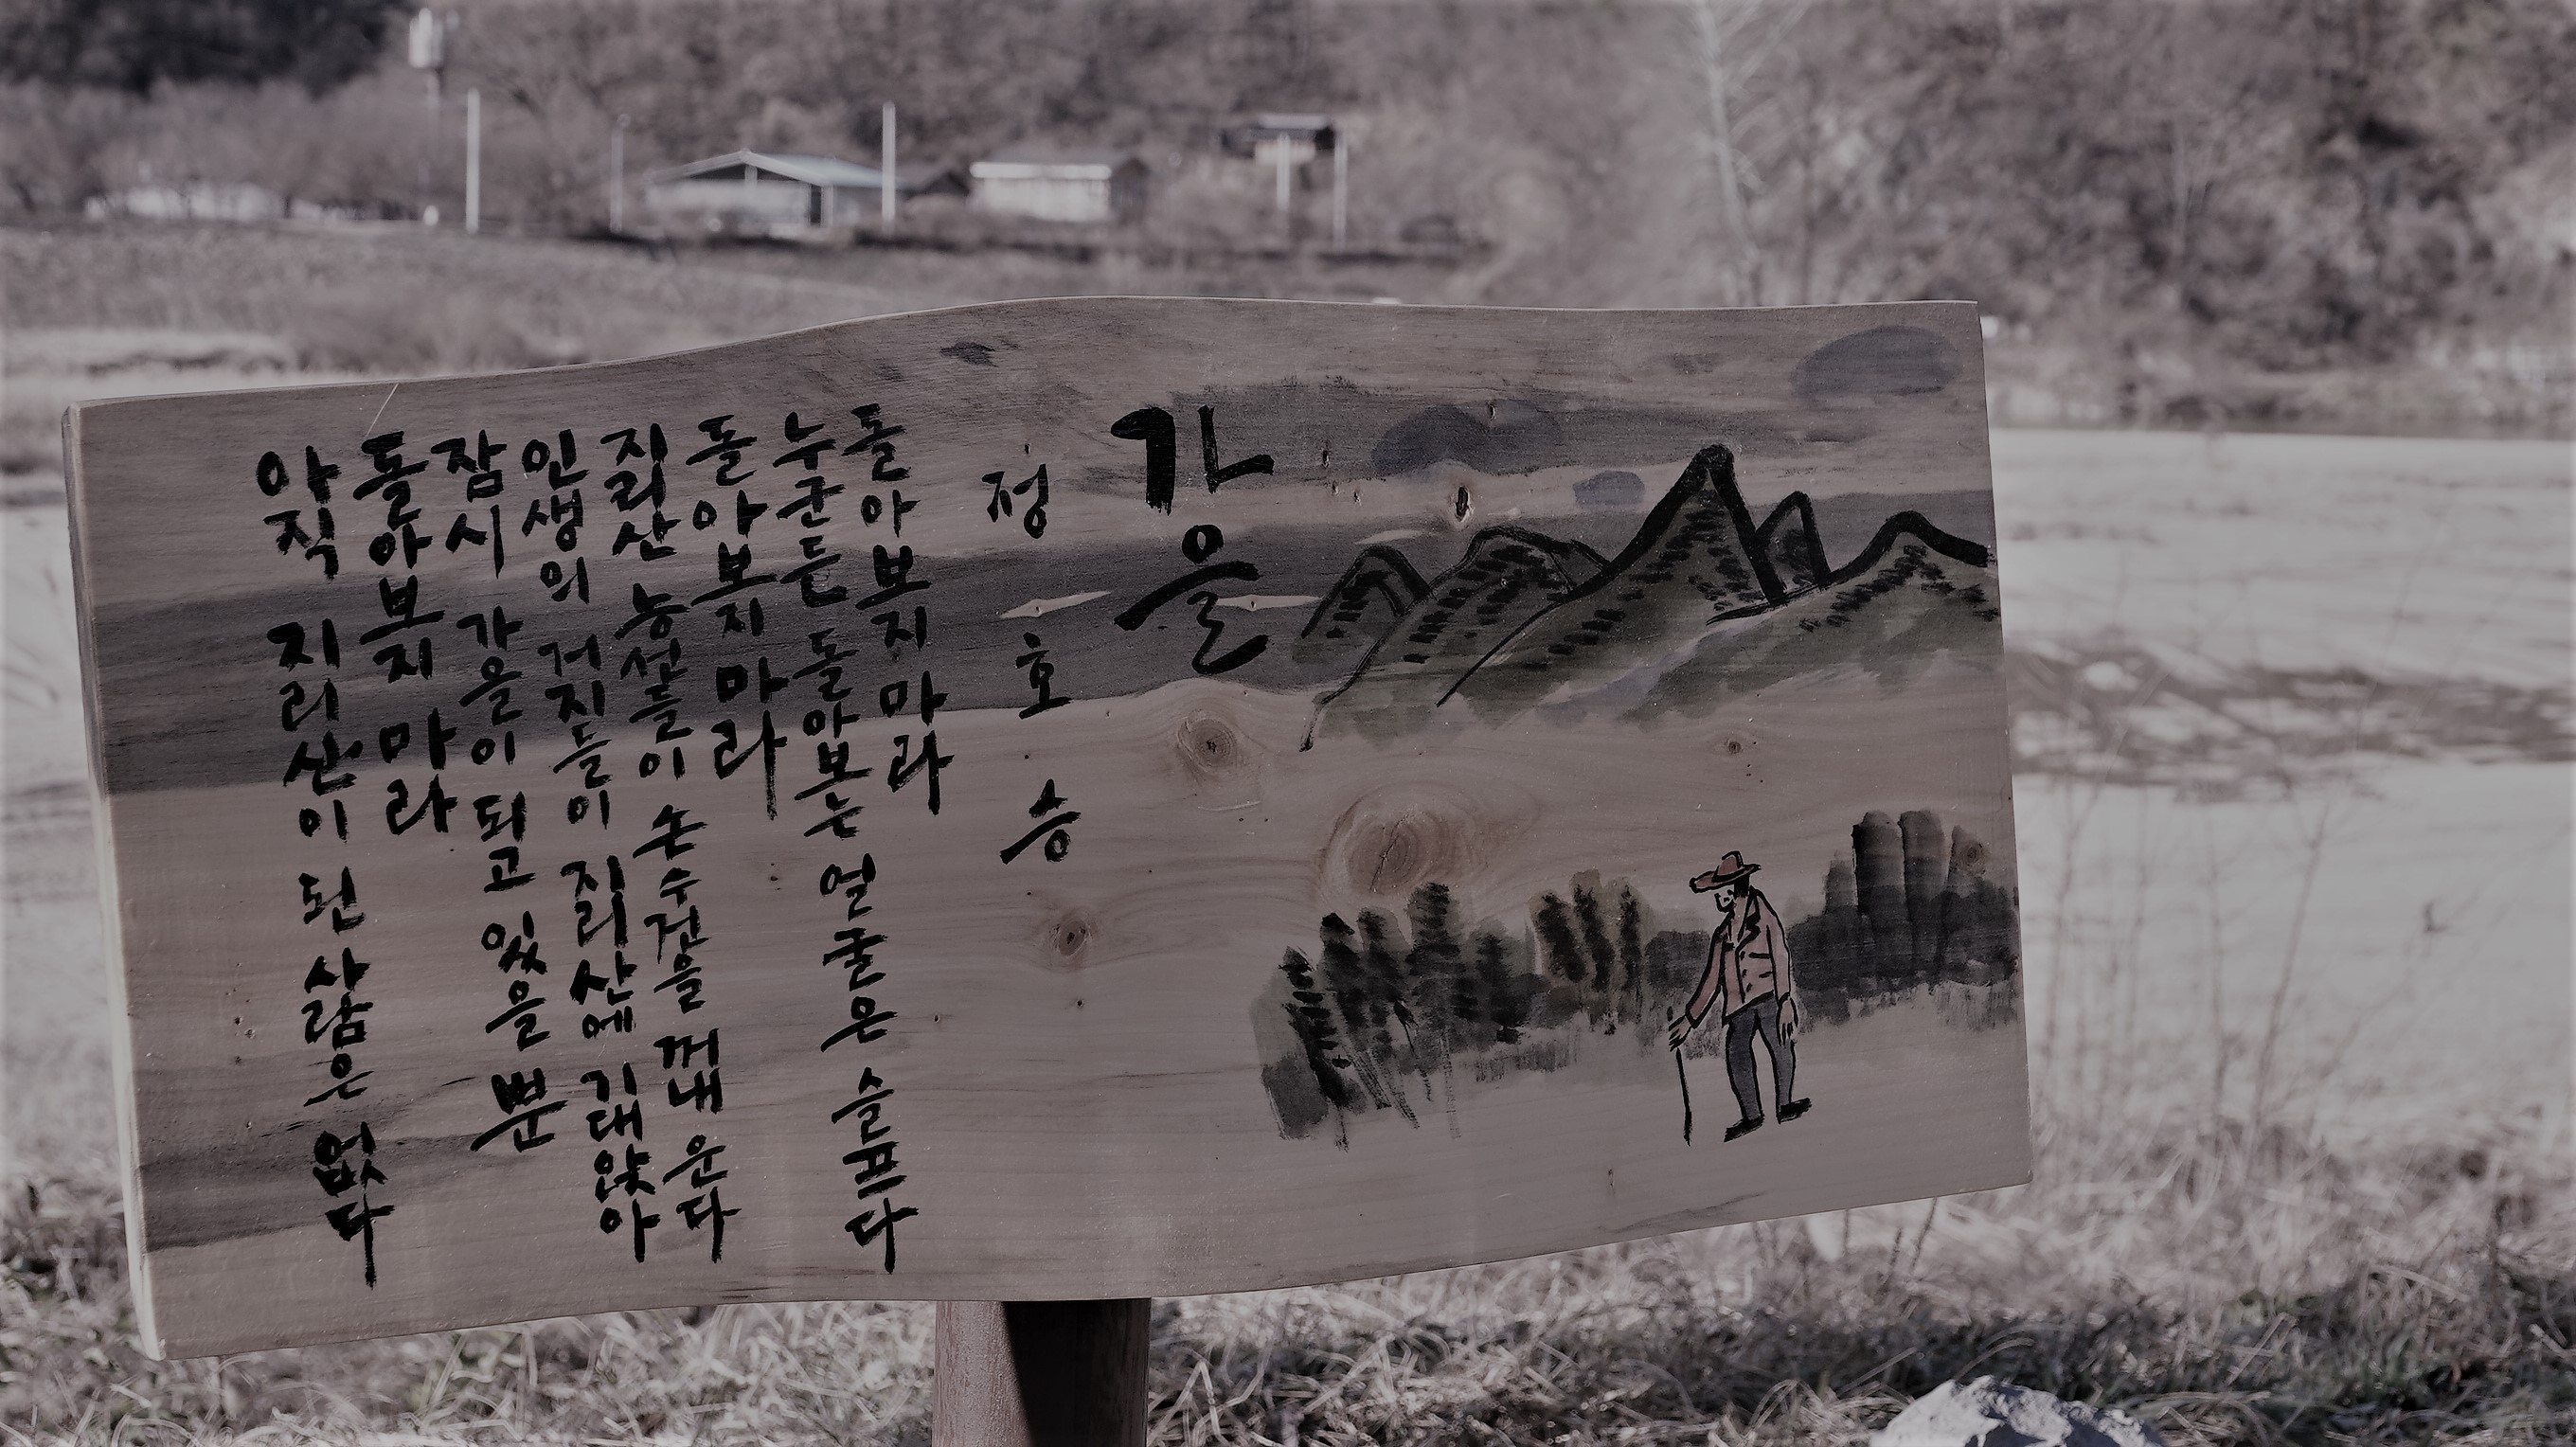 가을
정호승
돌아보지 마라
누군든 돌아보는 얼굴은 슬프다
돌아보지 마라
지리산 능선들이 손수건을 꺼내 운다
인생의 거지들이 지리산에 기대앉아
잠시 가을이 되고 있을 뿐
돌아보지 마라
아직 지리산이 된 사람은 없다